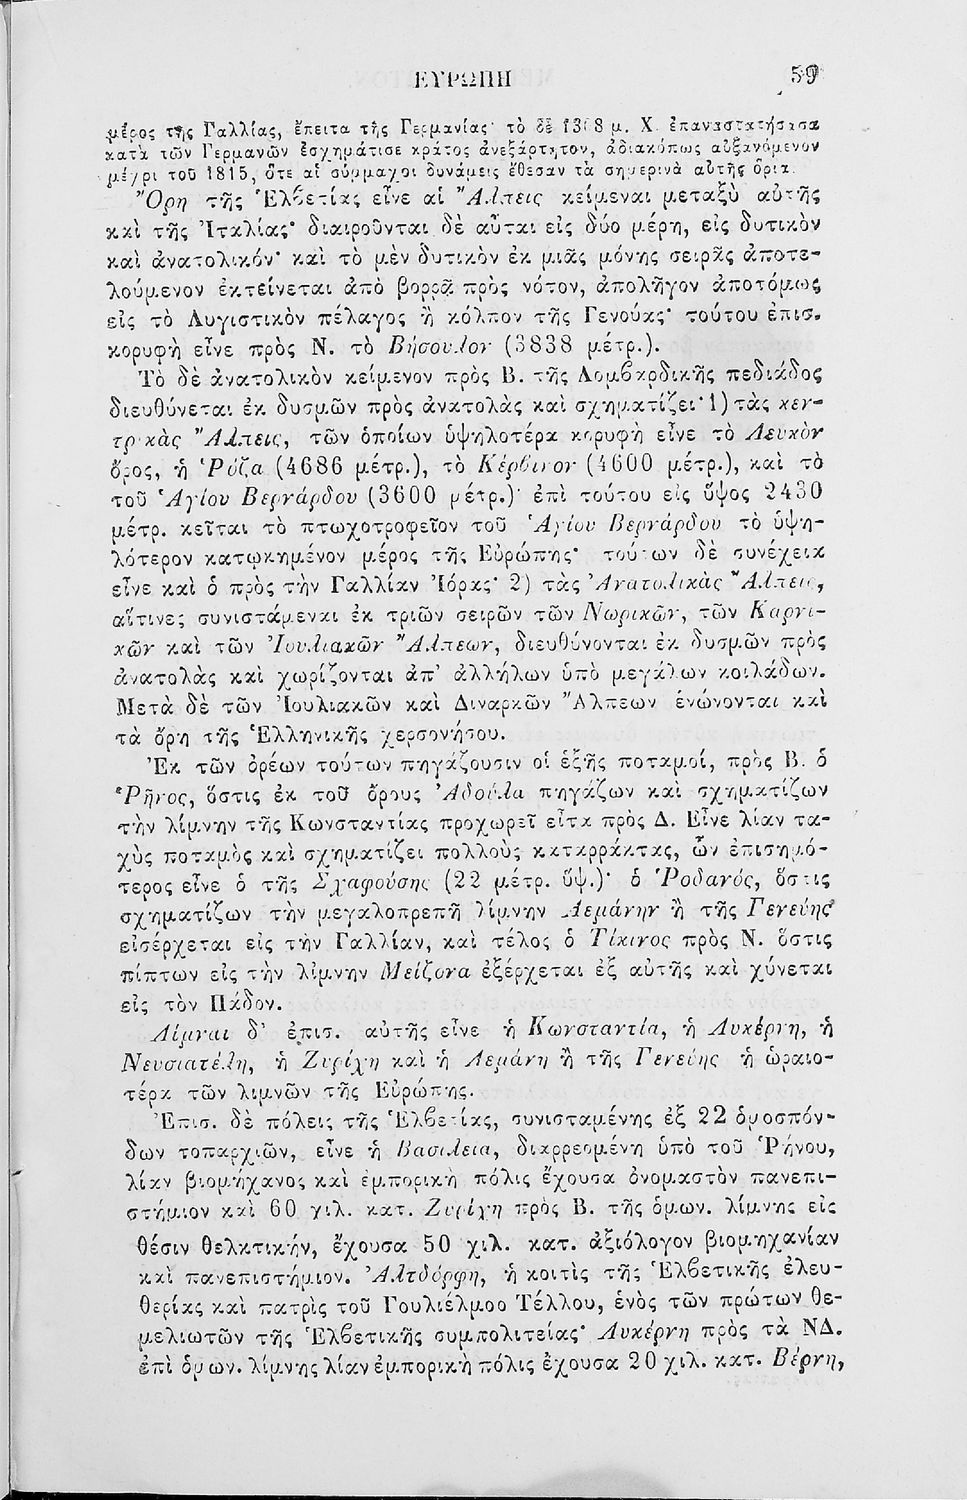 ΕΥΡΩΠΗ 59
μέρος τῆς Γαλλίας, ἔπειτα τῆς Γερμανίας· τὸ δὲ 1308 μ. Χ. ἐπαναστατήσασα
κατὰ τῶν Γερμανῶν ἐσχημάτισε κράτος ἀνεξάρτητον, ἀδιακόπως αὐξανόμενον
μέχρι τοῦ 1815, ὅτε αἱ σύμμαχοι δυνάμεις ἔθεσαν τὰ σημερινὰ αὐτῆς ὅρια.
Ὄρη τῆς Ἑλβετίας εἶνε αἱ Ἄλπεις κείμεναι μεταξὺ αὐτῆς
καὶ τῆς Ἰταλίας· διαιροῦνται δὲ αὗται εἰς δύο μέρη, εἰς δυτικὸν
καὶ ἀνατολικόν· καὶ τὸ μὲν δυτικὸν ἐκ μιᾶς μόνης σειρᾶς ἀποτε-
λούμενον ἐκτείνεται ἀπὸ βορρᾶ πρὸς νότον, ἀπολῆγον ἀποτόμως
εἰς τὸ Λυγιστικὸν πέλαγος ἢ κόλπον τῆς Γενούας· τούτου ἐπισ.
κορυφὴ εἶνε πρὸς Ν. τὸ Βήσουλον (3838 μέτρ.).
Τὸ δὲ ἀνατολικὸν κείμενον πρὸς Β. τῆς Λομβαρδικῆς πεδιάδος
διευθύνεται ἐκ δυσμῶν πρὸς ἀνατολὰς καὶ σχηματίζει· 1) τὰς κεν-
τρικὰς Ἄλπεις, τῶν ὁποίων ὑψηλοτέρα κορυφὴ εἶνε τὸ Λευκὸν
ὄρος, ἡ Ῥόζα (4686 μέτρ.), τὸ Κέρβινον (4600 μέτρ.), καὶ τὸ
τοῦ Ἁγίου Βερνάρδου (3600 μέτρ.)· ἐπὶ τούτου εἰς ὕψος 2430
μέτρ. κεῖται τὸ πτωχοτροφεῖον τοῦ Ἁγίου Βερνάρδου τὸ ὑψη-
λότερον κατῳκημένον μέρος τῆς Εὐρώπης· τούτων δὲ συνέχεια
εἶνε καὶ ὁ πρὸς τὴν Γαλλίαν Ἰόρας· 2) τὰς Ἀνατολικὰς Ἄλπεις,
αἵτινες συνιστάμεναι ἐκ τριῶν σειρῶν τῶν Νωρικῶν, τῶν Καρνι-
κῶν καὶ τῶν Ἰουλιακῶν Ἄλπεων, διευθύνονται ἐκ δυσμῶν πρὸς
ἀνατολὰς καὶ χωρίζονται ἀπ' ἀλλήλων ὑπὸ μεγάλων κοιλάδων.
Μετὰ δὲ τῶν Ἰουλιακῶν καὶ Διναρκῶν Ἄλπεων ἑνώνονται καὶ
τὰ ὄρη τῆς Ἑλληνικῆς χερσονήσου.
Ἐκ τῶν ὀρέων τούτων πηγάζουσιν οἱ ἑξῆς ποταμοί, πρὸς Β. ὁ
Ῥῆνος, ὅστις ἐκ τοῦ ὄρους Ἀδούλα πηγάζων καὶ σχηματίζων
τὴν λίμνην τῆς Κωνσταντίας προχωρεῖ εἶτα πρὸς Δ. Εἶνε λίαν τα-
χὺς ποταμὸς καὶ σχηματίζει πολλοὺς καταρράκτας, ὧν ἐπισημό-
τερος εἶνε ὁ τῆς Σχαφούσης (22 μέτρ. ὕψ.)· ὁ Ῥοδανός, ὅστις
σχηματίζων τὴν μεγαλοπρεπῆ λίμνην Λεμάνην ἢ τῆς Γενεύης
εἰσέρχεται εἰς τὴν Γαλλίαν, καὶ τέλος ὁ Τίκινος πρὸς Ν. ὅστις
πίπτων εἰς τὴν λίμνην Μείζονα ἐξέρχεται ἐξ αὐτῆς καὶ χύνεται
εἰς τὸν Πάδον.
Λίμναι δ' ἐπισ. αὐτῆς εἶνε ἡ Κωνσταντία, ἡ Λυκέρνη, ἡ
Νευσιατέλη, ἡ Ζυρίχη καὶ ἡ Λεμάνη ἢ τῆς Γενεύης ἡ ὡραιο-
τέρα τῶν λιμνῶν τῆς Εὐρώπης.
Ἐπισ. δὲ πόλεις τῆς Ἑλβετίας, συνισταμένης ἐξ 22 ὁμοσπόν-
δων τοπαρχιῶν, εἶνε ἡ Βασιλεία, διαρρεομένη ὑπὸ τοῦ Ῥήνου,
λίαν βιομήχανος καὶ ἐμπορικὴ πόλις ἔχουσα ὀνομαστὸν πανεπι-
στήμιον καὶ 60 χιλ. κατ. Ζυρίχη πρὸς Β. τῆς ὁμων. λίμνης εἰς
θέσιν θελκτικήν, ἔχουσα 50 χιλ. κατ. ἀξιόλογον βιομηχανίαν
καὶ πανεπιστήμιον. Ἀλτδόρφη, ἡ κοιτὶς τῆς Ἑλβετικῆς ἐλευ-
θερίας καὶ πατρὶς τοῦ Γουλιέλμοο Τέλλου, ἑνὸς τῶν πρώτων θε-
μελιωτῶν τῆς Ἑλβετικῆς συμπολιτείας· Λυκέρνη πρὸς τὰ ΝΔ.
ἐπὶ ὁμων. λίμνης λίαν ἐμπορικὴ πόλις ἔχουσα 20 χιλ. κατ. Βέρνη,